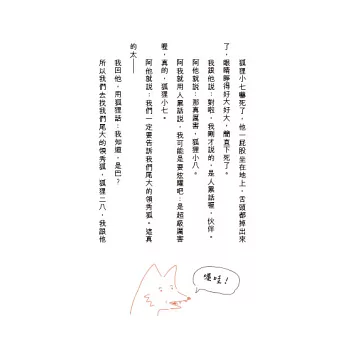 狐狸小七嚇死了，他一屁股坐在地上，舌頭都掉出來
了，眼睛睜得好大好大，簡直下死了。
我跟他說：對啦，我剛才說的，是人累話喔，伙伴。
阿他就說：那真厲害，狐狸小八。
阿我就用人累話說，我可能是要炫耀吧：是超級厲害
喔，真的，狐狸小七。
阿他就說：我們一定要告訴我們尾大的領秀狐。這真
的太——
我回他，用狐狸話：我知道，是巴？
所以我們去找我們尾大的領秀狐，狐狸二八，我跟他
噗哇！